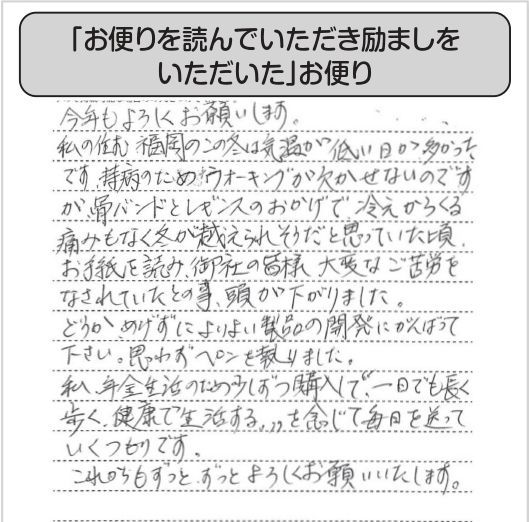 「お便りを読んでいただき励ましを
いただいた」お便り
今年もよろしくお願いします。
私の住む福岡のこの冬は気温が低い日が多かった
です。持病のためウオーキングが欠かせないのです
が、骨バンドとレギンスのおかげで冷えからくる
痛みもなく冬が越えられそうだと思っていた頃、
お手紙を読み、御社の皆様、大変なご苦労を
なされていたとの事、頭が下がりました。
どうか、めげずによりよい製品の開発にがんばって
下さい。思わずペンを執りました。
私、年金生活のため少しずつ購入して、一日でも長く
歩く、健康で生活する,,を念じて毎日を送って
いくつもりです。
これからもずっと、ずっとよろしくお願いいたします。